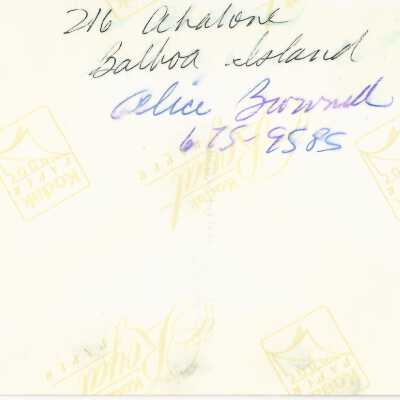 216 Abalone
Balboa Island
Alice Brownell
675-9585
Kodak
PAPER
Royal
Kodak
PAPER
Kodak
PAPER
Royal
PAPER
Kodak